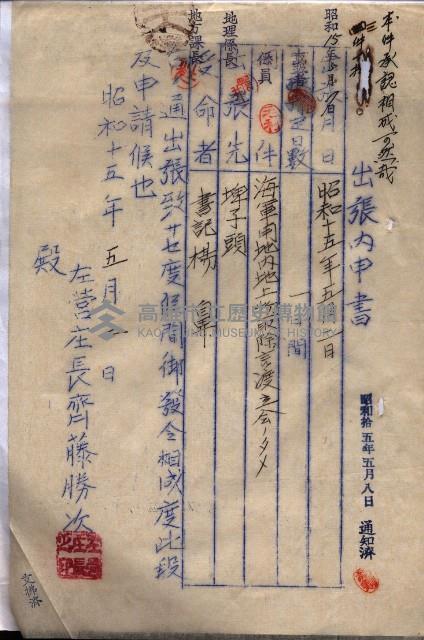 本件承認相成可然哉
出張內申書
昭和拾五年五月八日 通知濟
昭和15年5月
月日
昭和十五年五月一日
日數
一日間
係員
件
海軍用地內地上物取除言渡立会ノタメ
地理係長
出張先
埤子頭
地方課長
受命者
書記 楊
通出張致サセ度候間御發令相成度此段
及申請候也
昭和十五年五月一日
左營庄長齊藤勝次
殿
高雄市立歷史博物館
KAOHSIUNG MUSEUM OF HISTORY